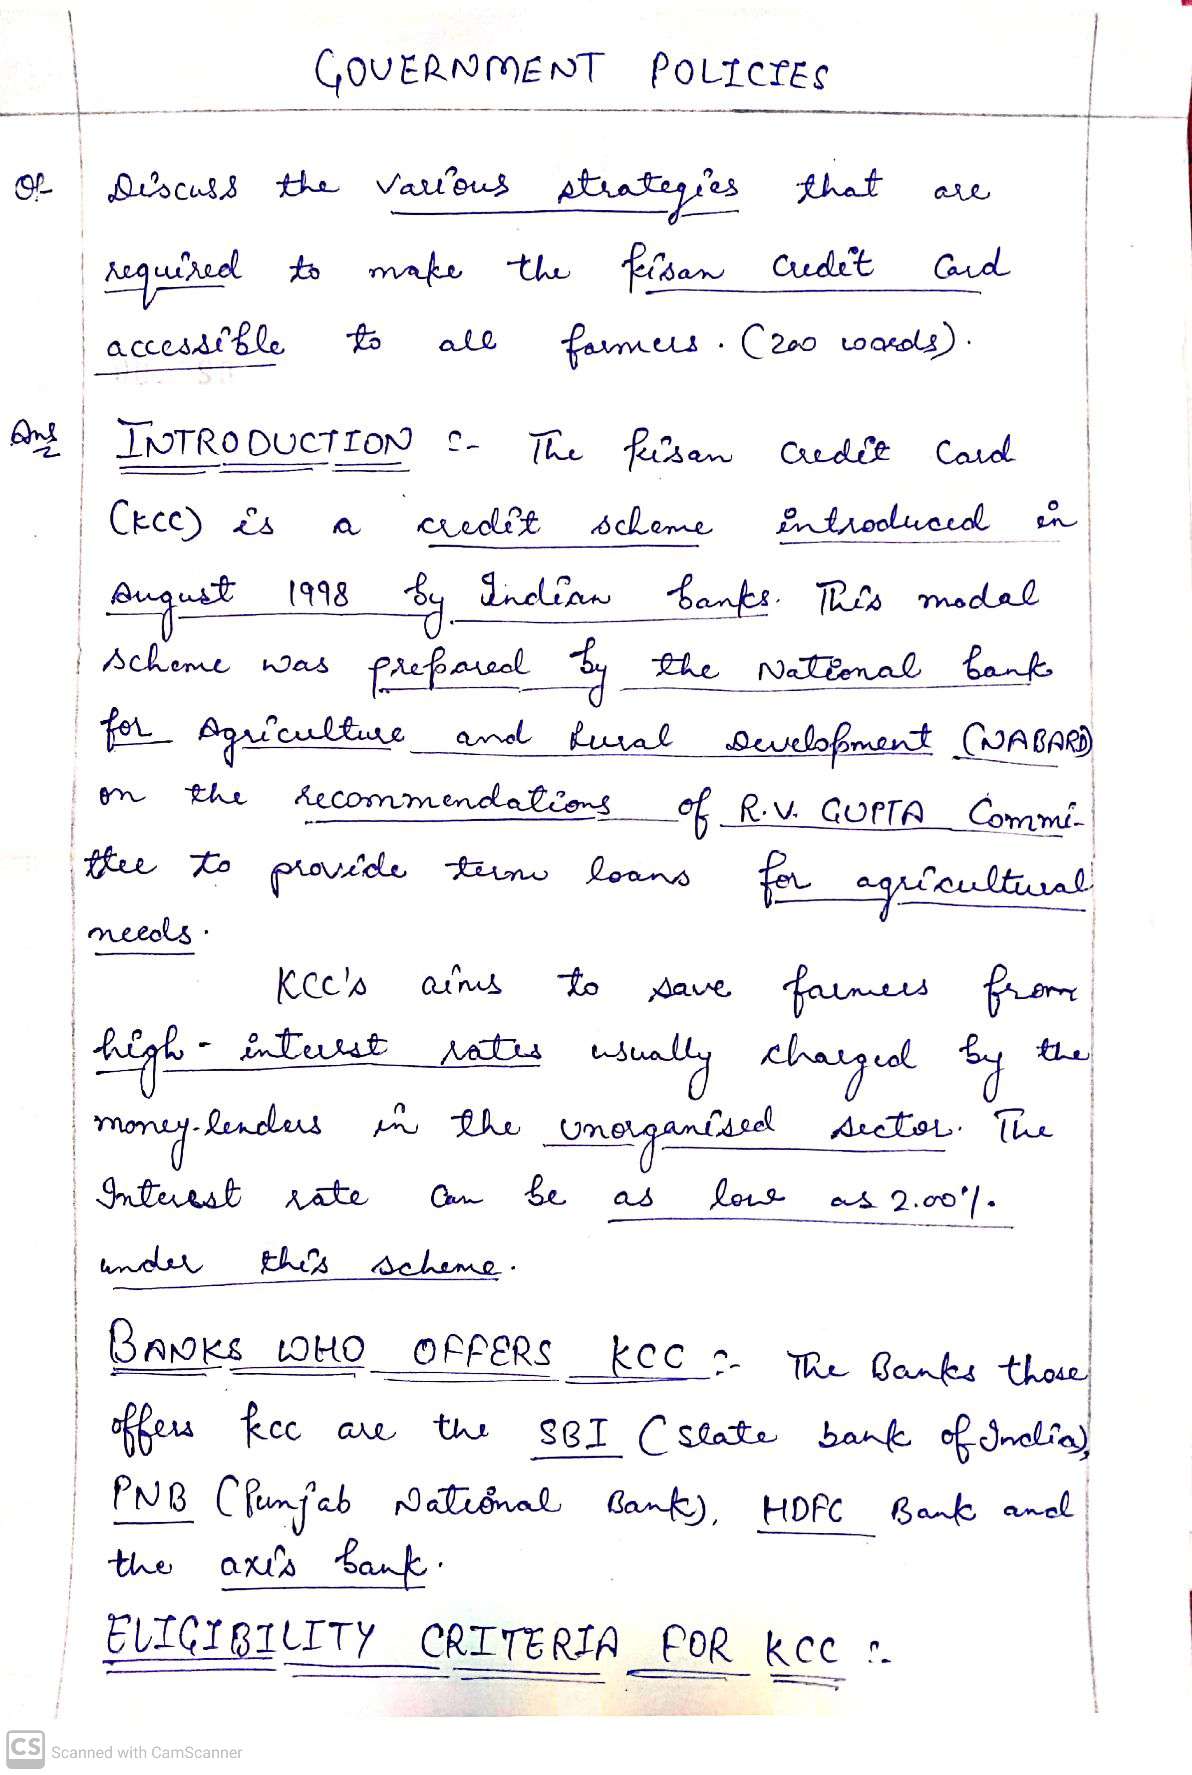 GOVERNMENT POLICIES
Q1- Discuss the various strategies that are
required to make the kisan Credit Card
accessible to all farmers. (200 words).
Ans INTRODUCTION :- The kisan Credit Card
(KCC) is a credit scheme introduced in
August 1998 by Indian banks. This modal
scheme was prepared by the National bank
for Agriculture and Rural Development (NABARD)
on the recommendations of R.V. GUPTA Commi-
ttee to provide term loans for agricultural
needs.
KCC's aims to save farmers from
high-interest rates usually charged by the
money-lenders in the unorganised sector. The
Interest rate Can be as low as 2.00%
under this scheme.
BANKS WHO OFFERS KCC :- The Banks those
offers kcc are the SBI (state bank of India),
PNB (Punjab National Bank), HDFC Bank and
the axis bank.
ELIGIBILITY CRITERIA FOR KCC :-
CS Scanned with CamScanner